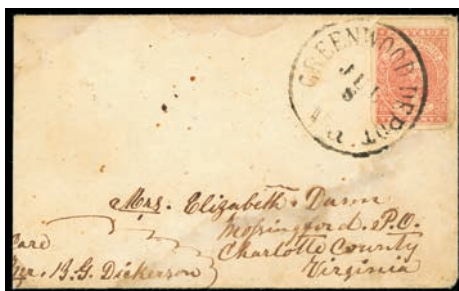 GREENWOOD DEPOT
JUL
Mrs. Elizabeth Dunn
Mossingford. P.O.
Charlotte County
Virginia
Care
Mr. B.G. Dickerson